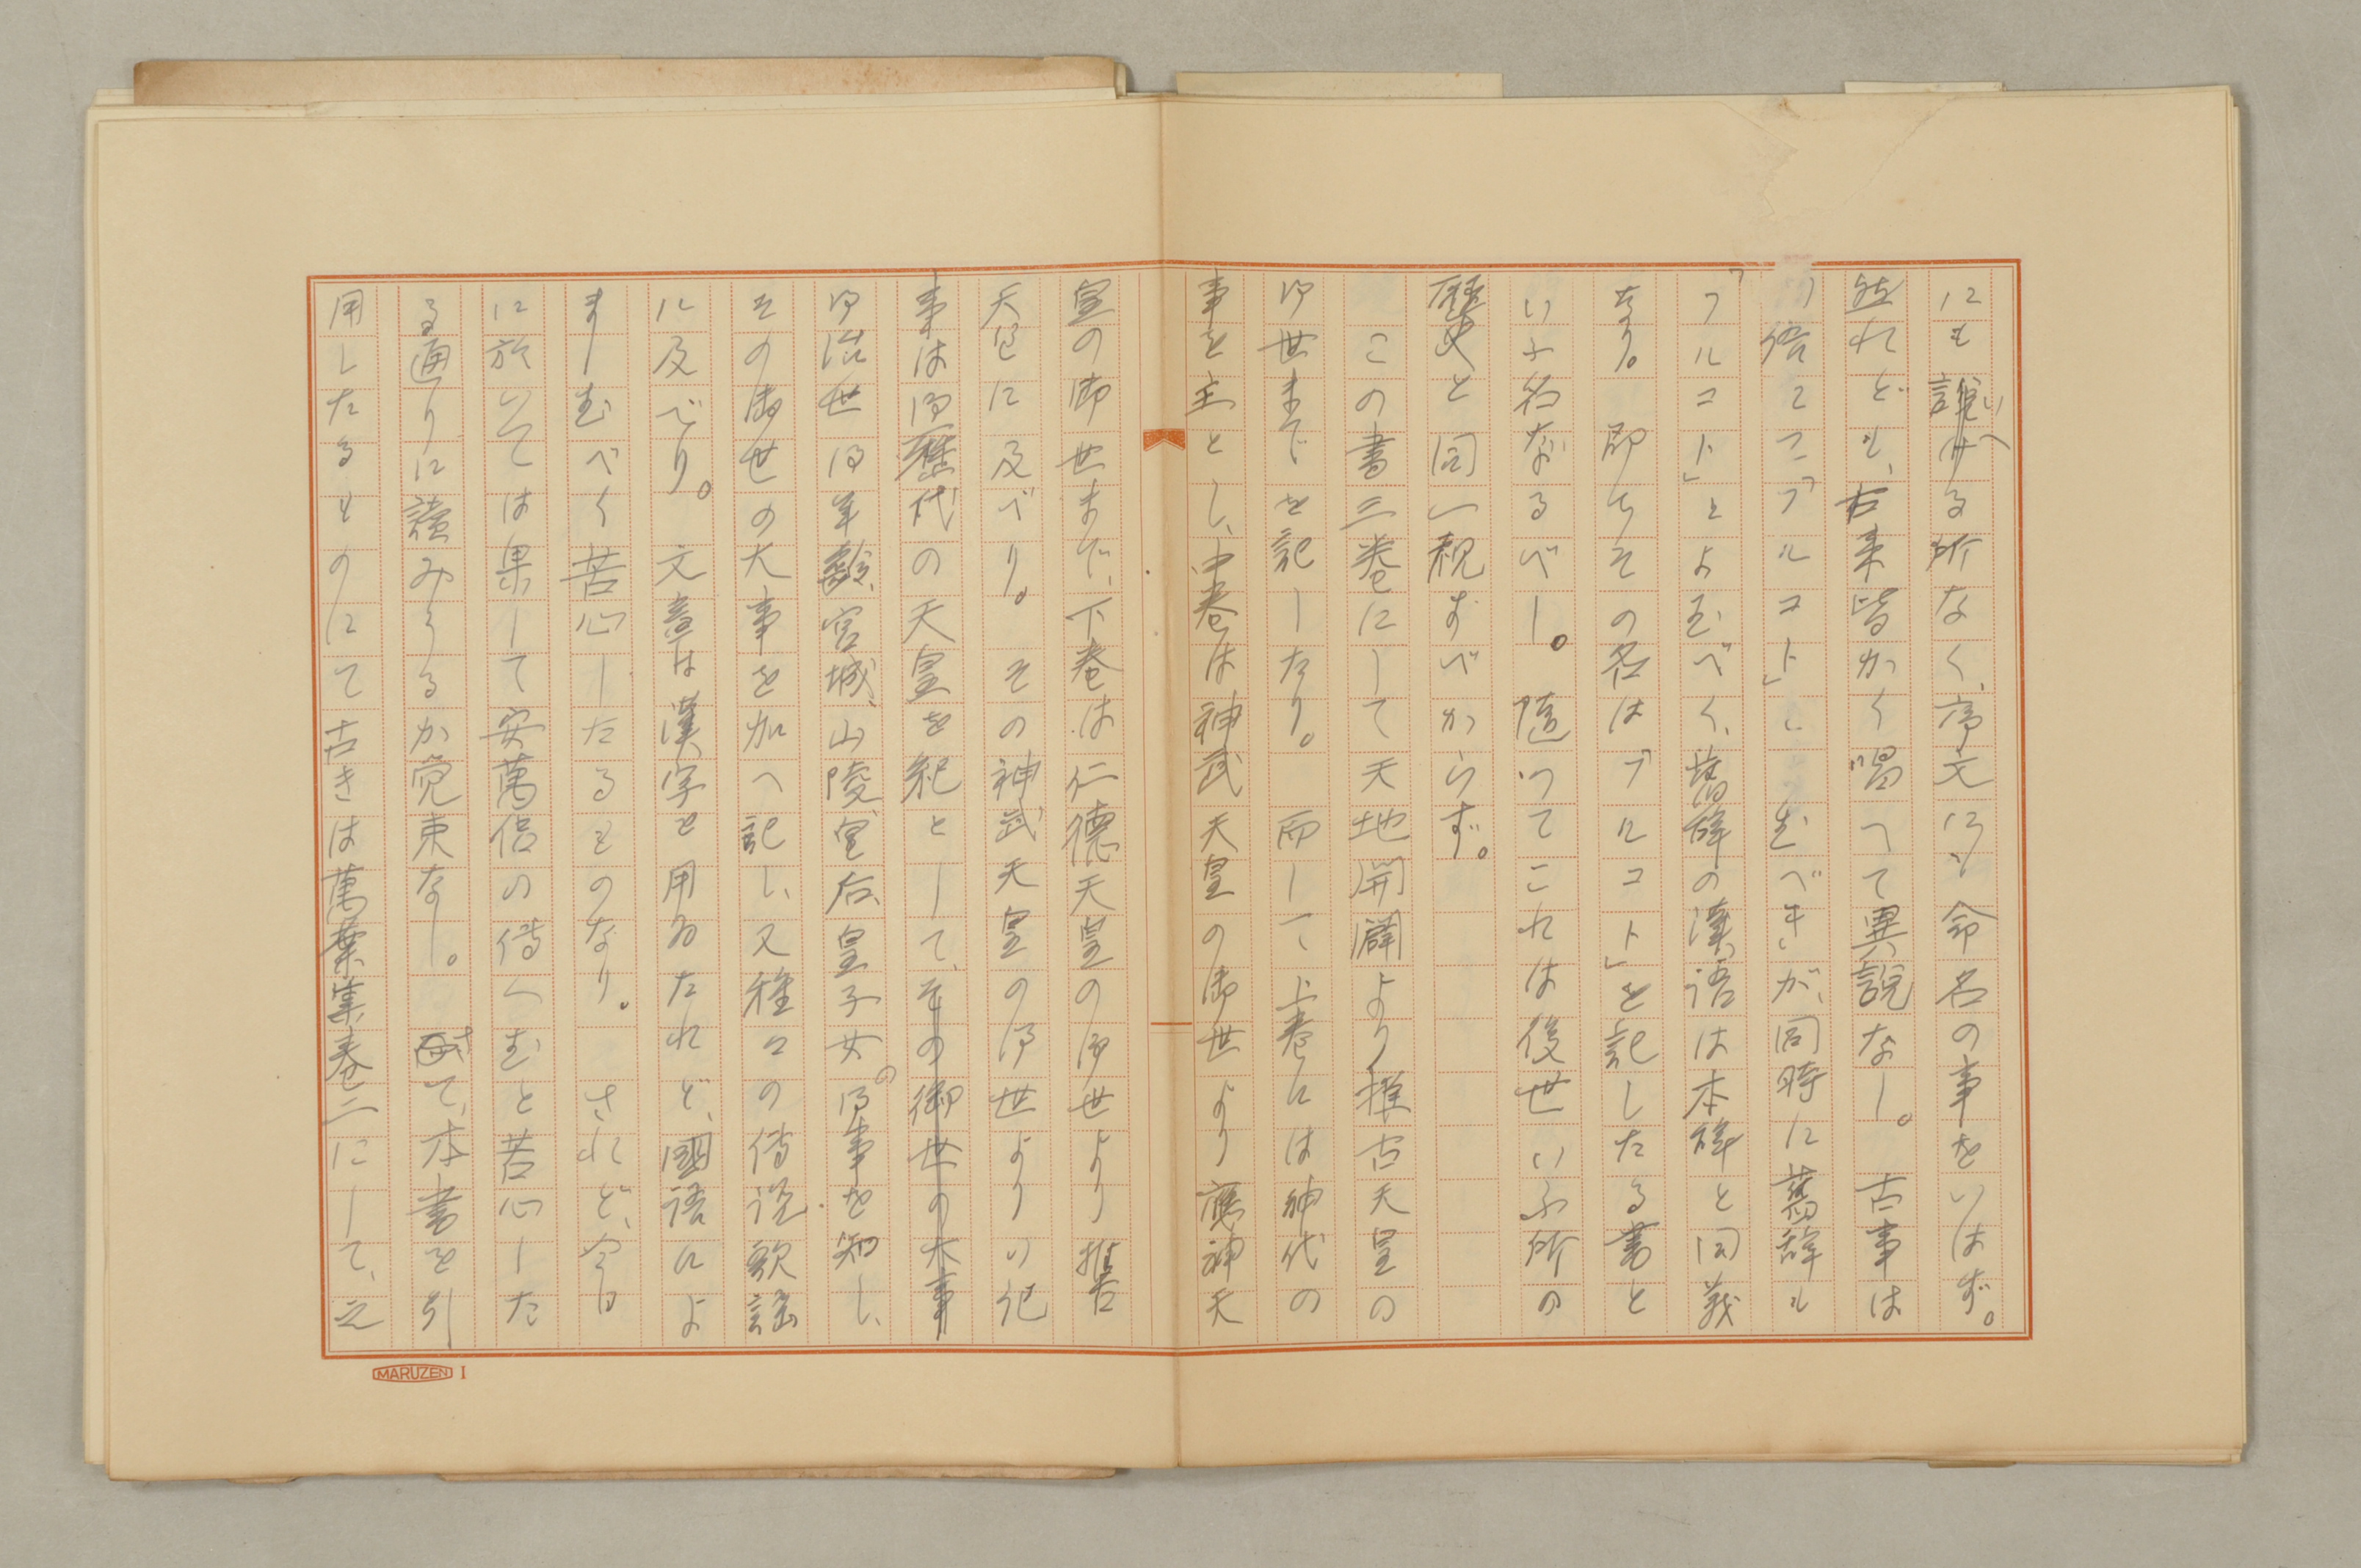 にも説いへる所なく、序文にも命名の事をいはず。
然れども、古来皆かく唱へて異説なし。　古事は
「フルコト」とよむべきが、同時に舊辞も
「フルコト」とよむべく、舊辞の漢語は本辞と同義
なり。　即ちその名は「フルコト」を記したる書と
いふ名なるべし。　随つてこれは後世いふ所の
歴史と同一視すべからず。
この書三巻にして天地開闢より推古天皇の
御世までを記したり。　而して上巻には神代の
事を主とし、中巻は神武天皇の御世より應神天
皇の御世まで、下巻は仁徳天皇の御世より推古
天皇に及べり。　その神武天皇の御世よりの記
事は御歴代の天皇を紀として、その御世の大事
御治世御年齢、宮城、山陵、皇后、皇子女の御事を知し、
その御世の大事を加へ記し、又種々の傳説歌謡
に及べり。　文章は漢字を用ゐたれど、國語によ
ましむべく苦心したるものなり。　されど、今日
に於いては果して安萬侶の傳へむと苦心した
る通りに讀みうるか覚束なし。　さて、本書を引
用したるものにて古きは萬葉集巻二にして、之
MARUZEN I